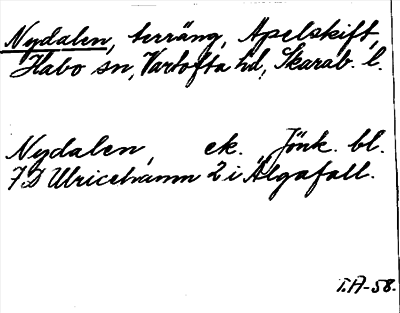 Nydalen, terräng, Apelskift,
Habo sn, Vartofta hd, Skarab. l.
Nydalen, ek. Jönk. bl.
7 D Ulricehamn 2 i Älgafall.
T.A-58.